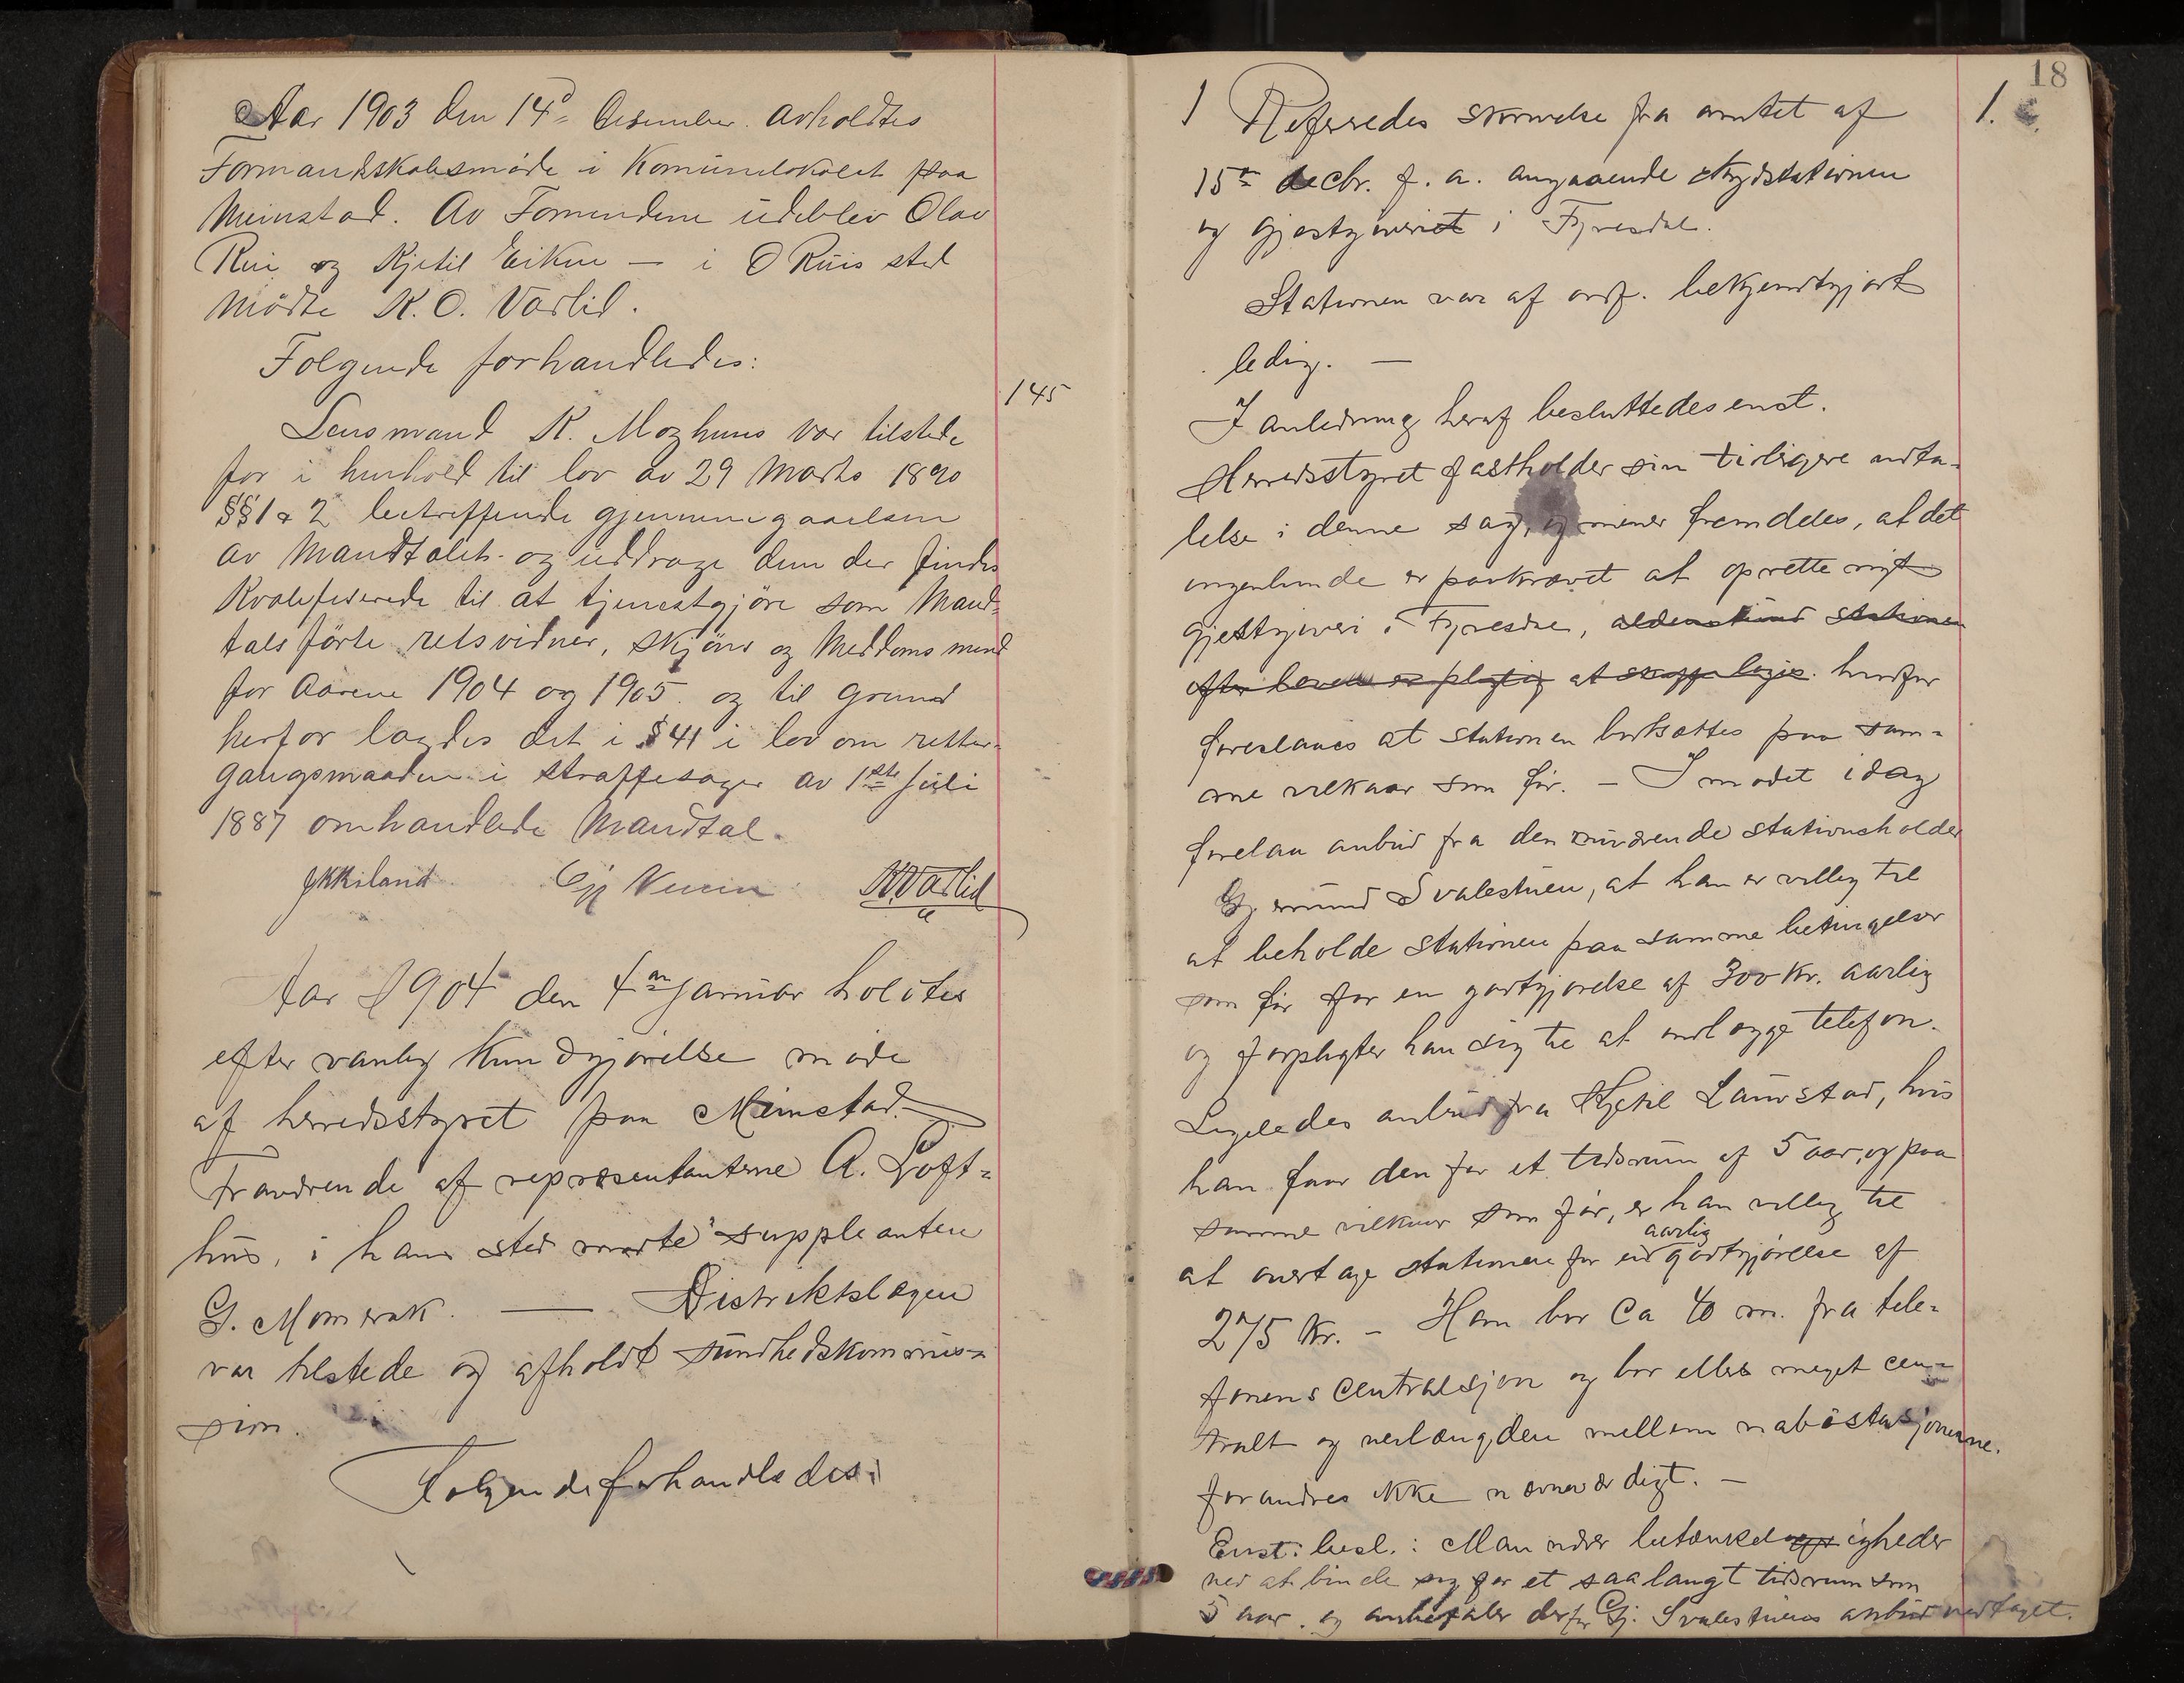 Aar 1903 den 14de Desember avholdtes
Formandskabsmöde i Komunelokalet paa
Meinstad. Av Formendene udeblev Olav
Rui og Kjetil Eikne — i O Ruis sted
mödte K. O. Vaslid.
Folgende forhandledes:
145
Lensmand K. Moghuus var tilstede
for i henhold til lov av 29 Marts 1890
§§ 1 & 2 betreffende gjennemgaaelsen
av Mandtalet og uddrage dem der findes
Kvalefiserede til at tjenestgjöre som Mand-
talsförte retsvidner, skjöns og Meddomsmend
for Aarene 1904 og 1905. og til grund
herfor lagdes det i § 41 i lov om retter-
gangsmaaden i straffesager av 1ste Juli
1887 omhandlede Mandtal.
Gj Veum K Vaslid
Aar 1904 den 4de januar holdtes
efter vanlig kundgjørelse møde
af herredsstyret paa Meinstad.
Fraværende af repræsentanterne A. Loft=
hus, i hans sted mødte suppleanten
G. Momrak. — Distriktslægen
var tilstede og afholdt sundhedskommis=
sion.
Følgende forhandledes:
18
1 Refereredes skrivelse fra amtet af 1.
15de decbr. f. a. angaaende skydsstationen
og gjestgiveriet i Fyresdal.
Stationen var af ordf. bekjendtgjort
ledig. —
I anledning heraf besluttedes enst.
Herredsstyret fastholder sin tidligere udta-
lelse i denne sag, og mener fremdeles, at det
ingenlunde er paakrævet at oprette nyt
gjestgiveri i Fyresdal, aldenstund stationen
efter loven er pligtig at skaffe logis. hvorfor
foreslaaes at stationen bortsættes paa sam=
me vilkaar som før. — I mødet idag
forelaa anbud fra den nuværende stationsholder
Gj. mund Svalestuen, at han er villig til
at beholde stationen paa samme betingelser
som før for en godtgjørelse af 300 Kr. aarlig
og forpligter han sig til at indlægge telefon.
Ligeledes anbud fra Kjetil Launstad, hvis
han faar den for et tidsrum af 5 aar, og paa
samme vilkaar som før, er han villig til
at overtage stationen for en aarlig godtgjørelse af
275 Kr. — Han bor ca 40 m. fra tele-
fonens centralsjon og bor ellers meget cen-
tralt og veilængden mellem nabostasjonerne
forandres ikke nævneværdigt. —
Enst. besl.: Man nærer betænkeligheder
ved at binde sig for et saa langt tidsrum som
5 aar, og anbefaler derfor Gj. Svalestuens anbud vedtaget.